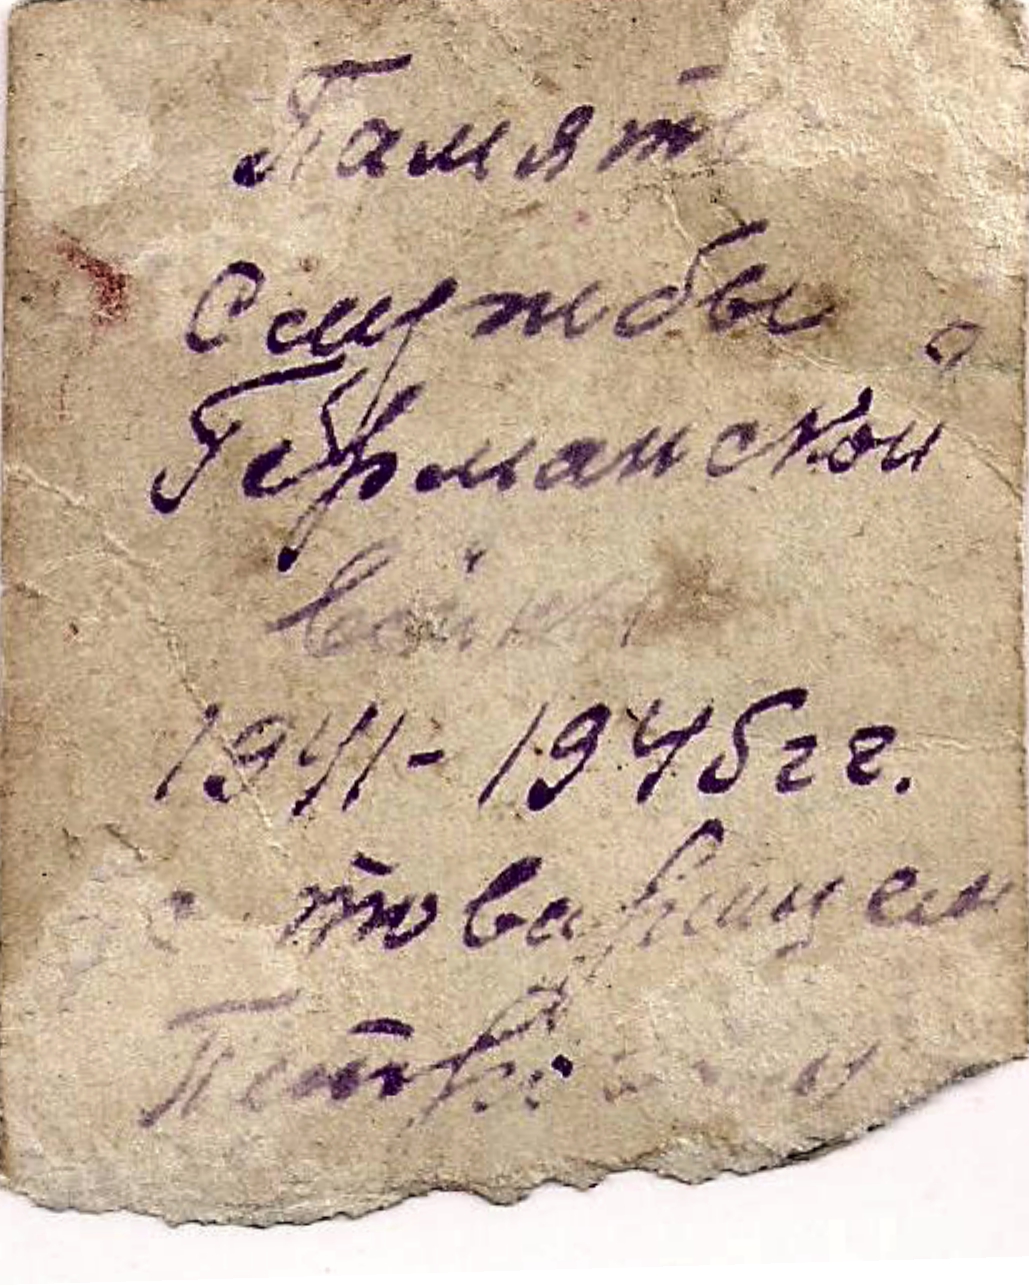 Память
Службы
Германской
войны
1941-1945гг.
с товарищем